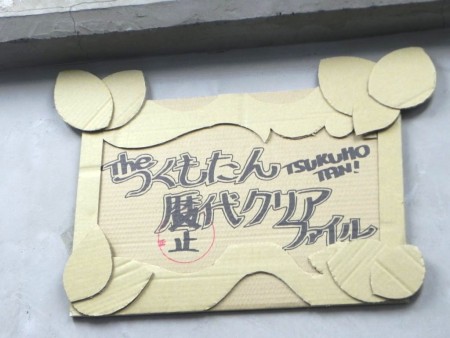 The つくもたん
TSUKUMO
TAN!
暦代クリア
止
ファイル